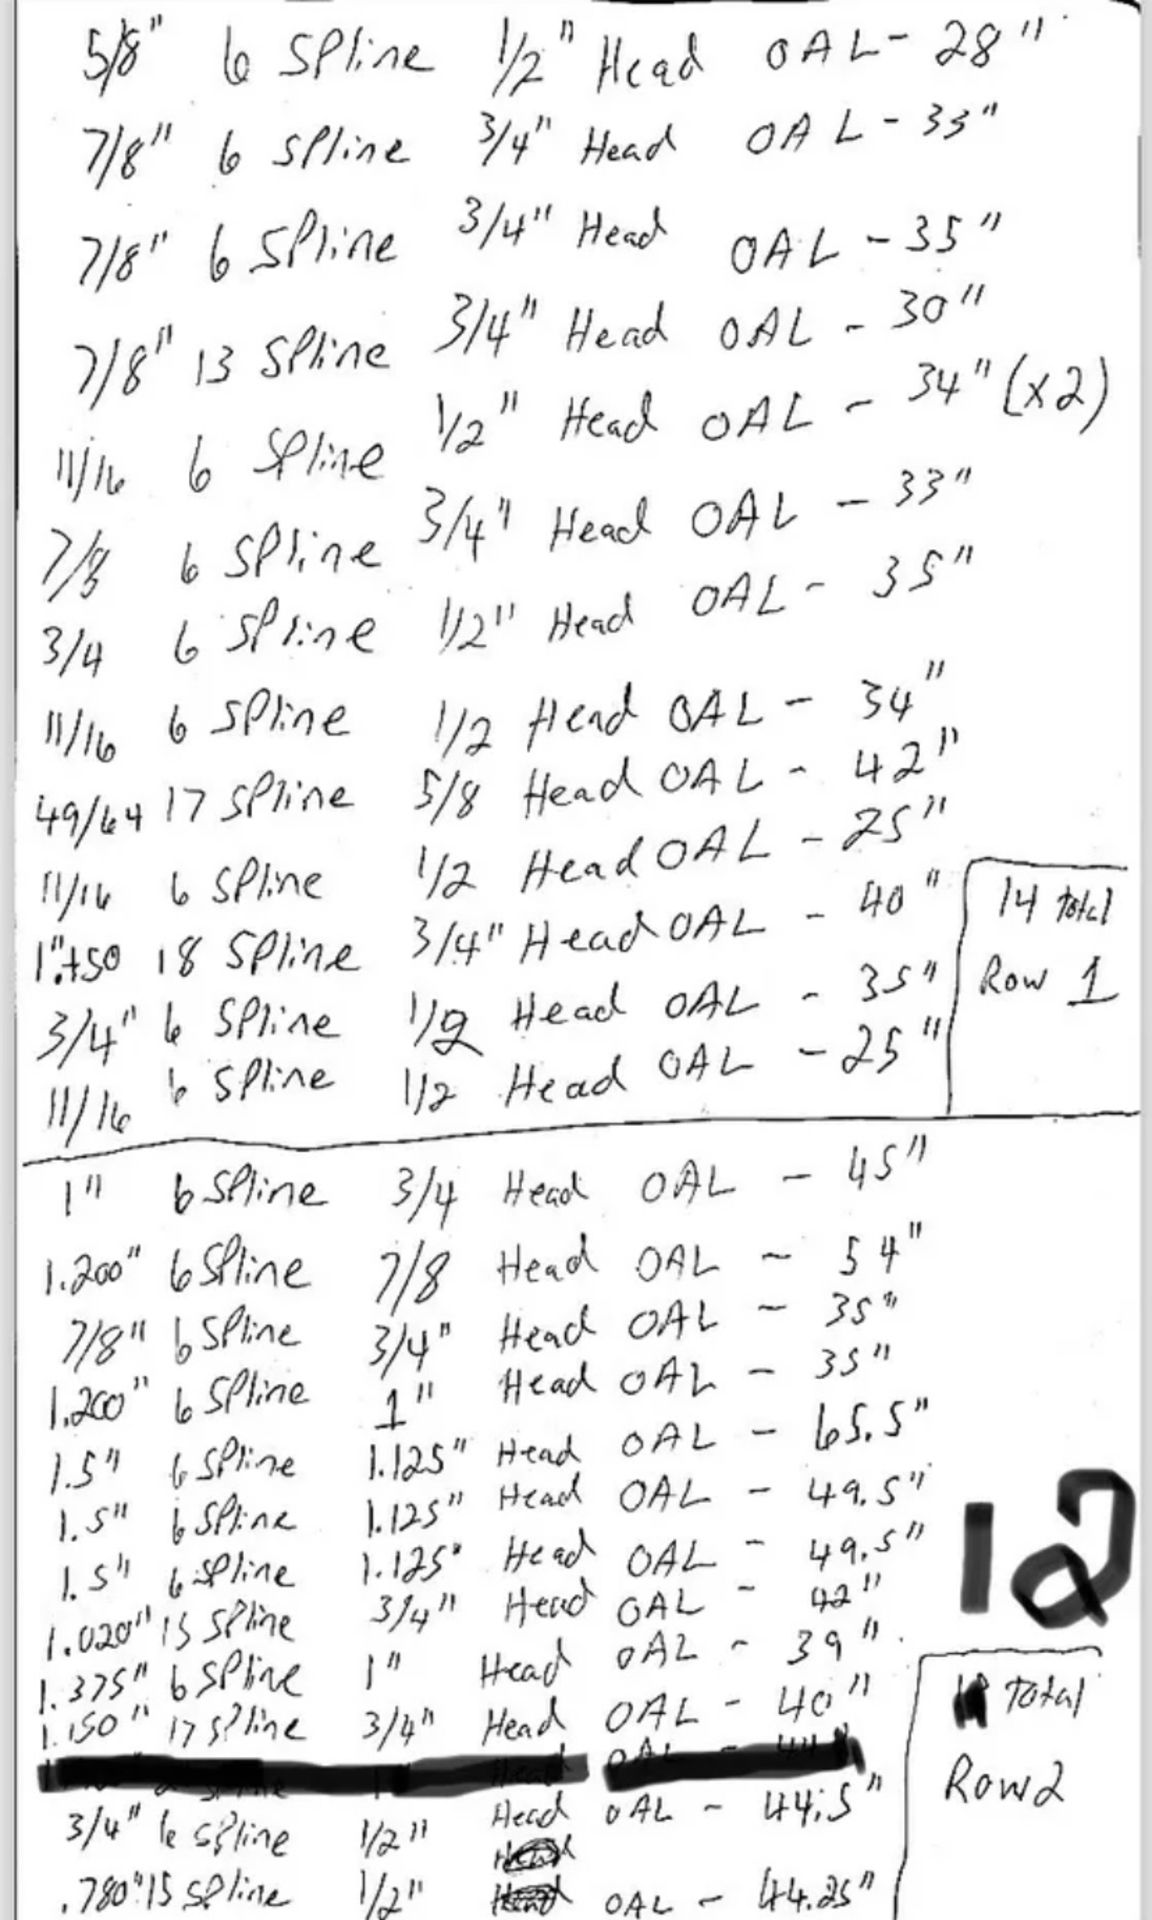 5/8" 6 SPline 1/2" Head OAL - 28"
7/8" 6 SPline 3/4" Head OAL - 33"
7/8" 6 SPline 3/4" Head OAL - 35"
7/8" 13 SPline 3/4" Head OAL - 30"
11/16 6 SPline 1/2" Head OAL - 34" (x2)
7/8 6 SPline 3/4" Head OAL - 33"
3/4 6 SPline 1/2" Head OAL - 35"
11/16 6 SPline 1/2 Head OAL - 34"
49/64 17 SPline 5/8 Head OAL - 42"
11/16 6 SPline 1/2 Head OAL - 25"
18 SPline 3/4" Head OAL - 40"
3/4" 6 SPline 1/2 Head OAL - 35"
11/16 6 SPline 1/2 Head OAL - 25"
14 total
Row 1
1" 6 SPline 3/4 Head OAL - 45"
1.200" 6 SPline 7/8 Head OAL - 54"
7/8" 6 SPline 3/4" Head OAL - 35"
1.200" 6 SPline 1" Head OAL - 35"
1.5" 6 SPline 1.125" Head OAL - 65.5"
1.5" 6 SPline 1.125" Head OAL - 49.5"
1.5" 6 SPline 1.125" Head OAL - 49.5"
1.020" 15 SPline 3/4" Head OAL - 42"
1.375" 6 SPline 1" Head OAL - 39"
1.150" 17 SPline 3/4" Head OAL - 40"
3/4" 6 SPline 1/2" Head OAL - 44.5"
.780" 15 SPline 1/2" OAL - 44.25"
12
Total
Row 2